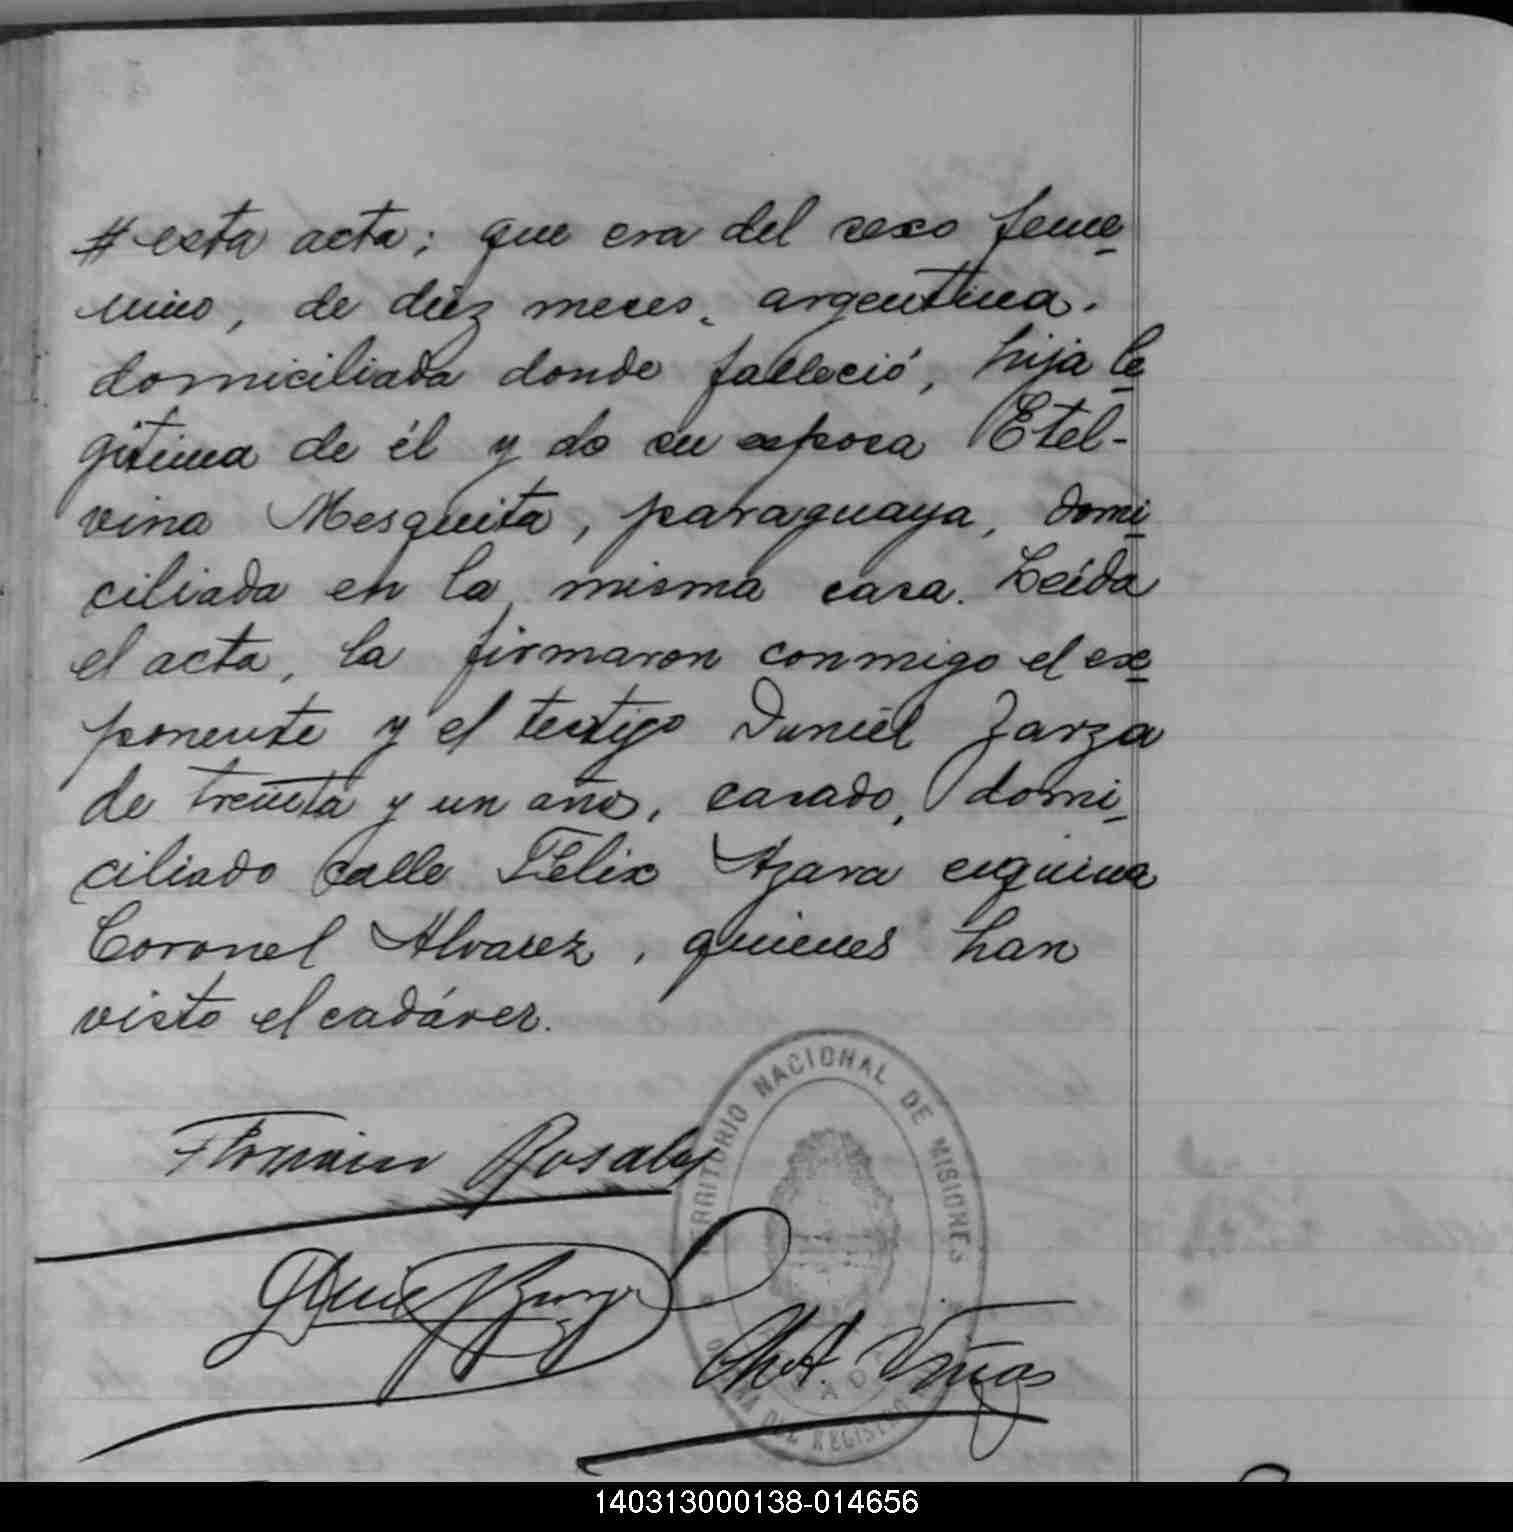 # esta acta; que era del sexo feme-
nino, de diez meses, argentina,
domiciliada donde falleció, hija le-
gitima de él y de su esposa Etel-
vina Mesquita, paraguaya, domi-
ciliada en la misma casa. Leída
el acta, la firmaron conmigo el ex-
ponente y el testigo Daniel Zarza
de treinta y un años, casado, domi-
ciliado calle Felix Azara esquina
Coronel Alvarez, quienes han
visto el cadáver.
TERRITORIO NACIONAL DE MISIONES
Rosales
Viñas
DEL REGISTRO
140313000138-014656